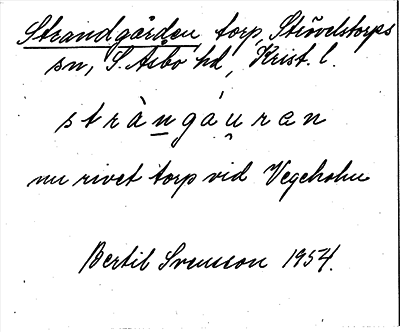 Strandgården torp, Stövelstorps
sn, S. Åsbo hd, Krist. l.
stràn̲gáu̯ren
nu rivet torp vid Vegeholm
Bertil Svensson 1954.